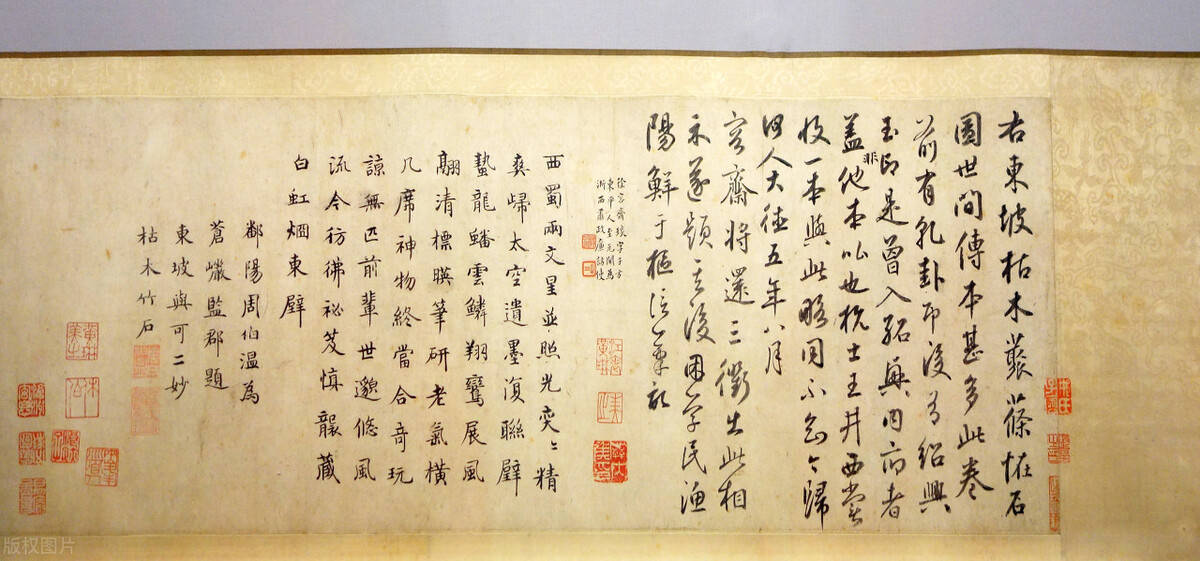 右東坡枯木叢篠怪石
圖世間傳本甚多此卷
前有乳卦印後有紹興
玉印是曾入紹興内府者
蓋非他本比也杭士王井西嘗
收一本與此略同不知今歸
何人大德五年八月
容齋將還三衢出此相
示遂題其後困學民漁
陽鮮于樞伯幾記
徐容齋琰字子方
東平人至元間為
浙西肅政廉訪使
西蜀兩文星並照光奕奕精
爽歸太空遺墨復聯璧
蟄龍蟠雲鱗翔鸞展風
翮清標暎筆研老氣橫
几席神物終當合奇玩
諒無匹前輩世邈悠風
流今彷彿祕笈慎襲藏
白虹烟東壁
鄱陽周伯溫為
蒼巗監郡題
東坡與可二妙
枯木竹石
版权图片